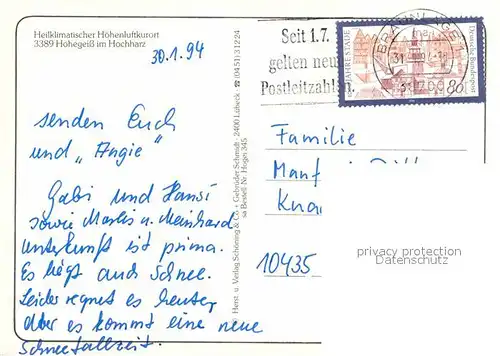 Heilklimatischer Höhenluftkurort
3389 Hohegeiß im Hochharz
30.1.94
senden Euch
und „Angie"
Gabi und Hansi
sowie Marlis u. Meinhard.
Unterkunft ist prima.
Es liegt auch Schnee.
Leider regnet es heute,
aber es kommt eine neue
Schneefallzeit.
Herst. u. Verlag Schöning & Co. · Gebrüder Schmidt · 2400 Lübeck · ☎ (0451) 31224
sa Bestell-Nr. Hogei 345
Seit 1.7.
gelten neue
Postleitzahlen.
BRAUNLAGE 1
JAHRE STADE
Deutsche Bundespost
80
Familie
Manf
Kna
10435
privacy protection
Datenschutz